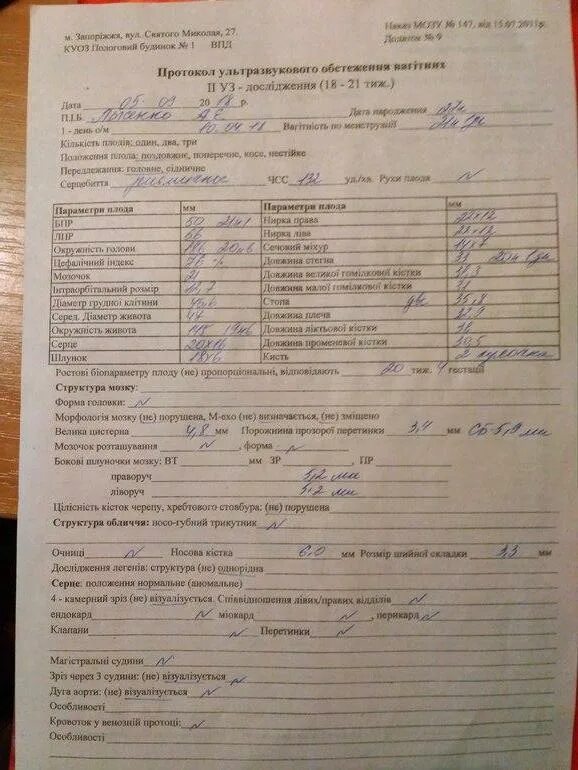 м. Запоріжжя, вул. Святого Миколая, 27
КУОЗ Пологовий будинок № 1 ВПД
Наказ МОЗУ № 147, від 15.07.2011р.
Додаток № 9
Протокол ультразвукового обстеження вагітних
ІІ УЗ - дослідження (18 - 21 тиж.)
Дата 05 09 2018 р.
Дата народження
П.І.Б.
1 - день о/м 10.04.18 Вагітність по менструції 21н 1дн
Кількість плодів: один, два, три
Положення плода: поздовжнє, поперечне, косе, нестійке
Передлежання: головне, сідничне
Серцебиття ритмичное ЧСС 132 уд/хв. Рухи плода N
Параметри плода мм Параметри плода мм
БПР 50 21н1 Нирка права 22х12
ЛПР 66 Нирка ліва 22х12
Окружність голови 186 20н6 Сечовий міхур 14х7
Цефалічний індекс 76 % Довжина стегна 33
Мозочок 21 Довжина великої гомілкової кістки
Інтраорбітальний розмір Довжина малої гомілкової кістки
Діаметр грудної клітини 45,6 Стопа две 35,8
Серед. Діаметр живота 47 Довжина плеча 32,9
Окружність живота 19н6 Довжина ліктьової кістки
Серце 20х16 Довжина променевої кістки 30,5
Шлунок 18х6 Кисть 2
Ростові біопараметру плоду (не) пропорціональні, відповідають 20 тиж. 4 гестації
Структура мозку:
Форма головки: N
Морфологія мозку (не) порушена, М-ехо (не) визначається, (не) зміщено
Велика цистерна 4,8 мм Порожнина прозорої перетинки 3,4 мм СБ-5,9 мм
Мозочок розташування N , форма N
Бокові шлуночки мозку: ВТ мм ЗР , ПР
праворуч 5,2 мм
ліворуч 5,2 мм
Цілісність кісток черепу, хребтового стовбура: (не) порушена
Структура обличчя: носо-губний трикутник N
Очниці N Носова кістка 6,0 мм Розмір шийної складки 3,3 мм
Дослідження легенів: структура (не) однорідна
Серце: положення нормальне (аномальне)
4 - камерний зріз (не) візуалізується. Співвідношення лівих/правих відділів N
ендокард N міокард N , перикард N
Клапани N Перетинки N
Магістральні судини N
Зріз через 3 судини: (не) візуалізується N
Дуга аорти: (не) візуалізується N
Особливості
Кровоток у венозній протоці: N
Особливості